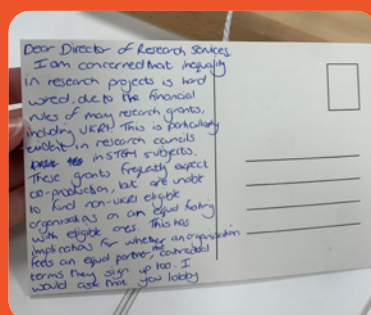 Dear Director of Research Services
I am concerned that inequality
in research projects is hard
wired, due to the financial
rules of many research grants,
including UKRI. This is particularly
evident in research councils
in STEM subjects.
These grants frequently expect
co-production, but are unable
to fund non-UKRI eligible
organisations on an equal footing
with eligible ones. This has
implications for whether an organisation
feels an equal partner, the contractual
terms they sign up too. I
would ask that you lobby